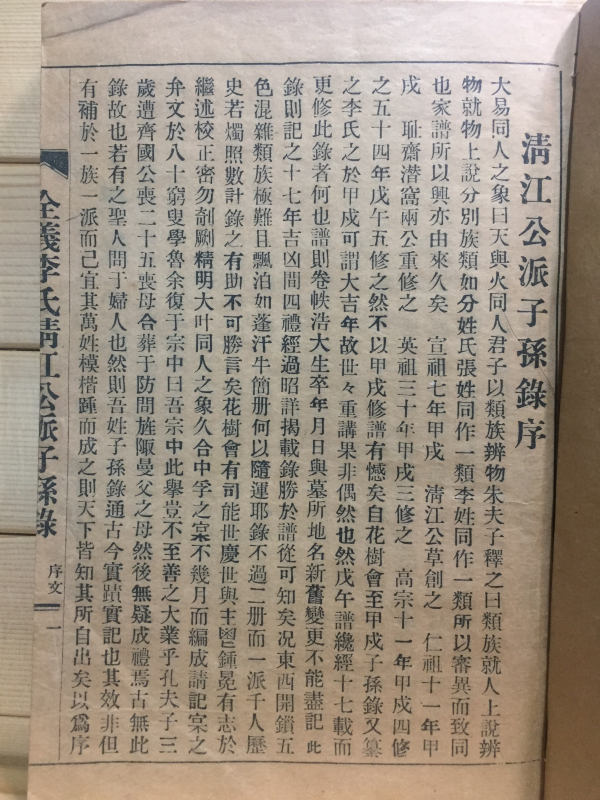 淸江公派子孫錄序
大易同人之象曰天與火同人君子以類族辨物朱夫子釋之曰類族就人上說辨
物就物上說分別族類如分姓氏張姓同作一類李姓同作一類所以審異而致同
也家譜所以興亦由來久矣 宣祖七年甲戌 淸江公草創之 仁祖十一年甲
戌 耻齋潜窩兩公重修之 英祖三十年甲戌三修之 高宗十一年甲戌四修
之五十四年戊午五修之然不以甲戌修譜有憾矣自花樹會至甲戌子孫錄又纂
之李氏之於甲戌可謂大吉年故世々重講果非偶然也然戊午譜纔經十七載而
更修此錄者何也譜則卷帙浩大生卒年月日與墓所地名新舊變更不能盡記此
錄則記之十七年吉凶間四禮經過昭詳揭載錄勝於譜從可知矣况東西開鎖五
色混雜類族極難且飄泊如蓬汗牛簡册何以隨運耶錄不過二册而一派千人歷
史若燭照數計錄之有助不可勝言矣花樹會有司能世慶世與主鬯鍾冕有志於
繼述校正密勿剞劂精明大叶同人之象久合中孚之寀不幾月而編成請記寀之
弁文於八十窮叟學魯余復于宗中曰吾宗中此擧豈不至善之大業乎孔夫子三
歲遭齊國公喪二十五喪母合葬于防問旌陬曼父之母然後無疑成禮焉古無此
錄故也若有之聖人問于婦人也然則吾姓子孫錄通古今實蹟實記也其效非但
有補於一族一派而已宜其萬姓模楷踵而成之則天下皆知其所自出矣以爲序
全義李氏淸江公派子孫錄 序文 一